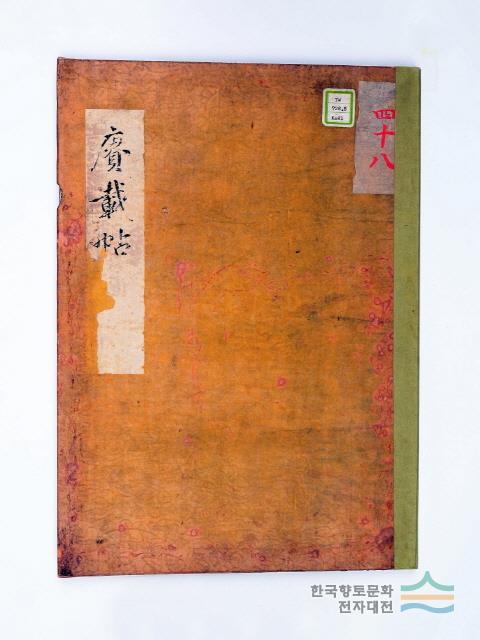 賡載帖
四十八
한국향토문화
전자대전